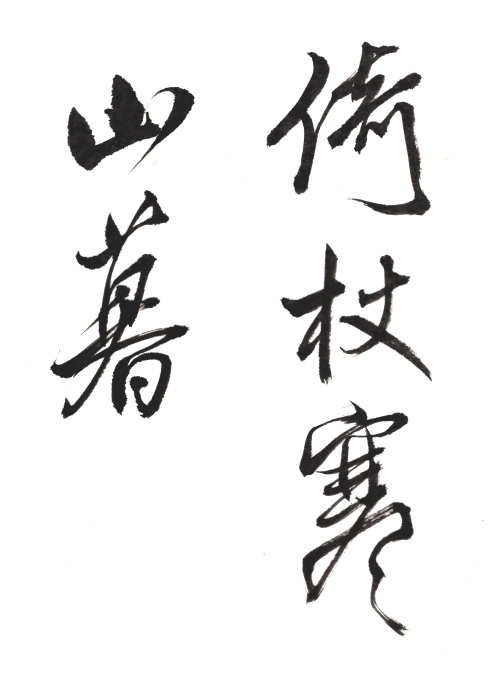 倚杖寒
山暮